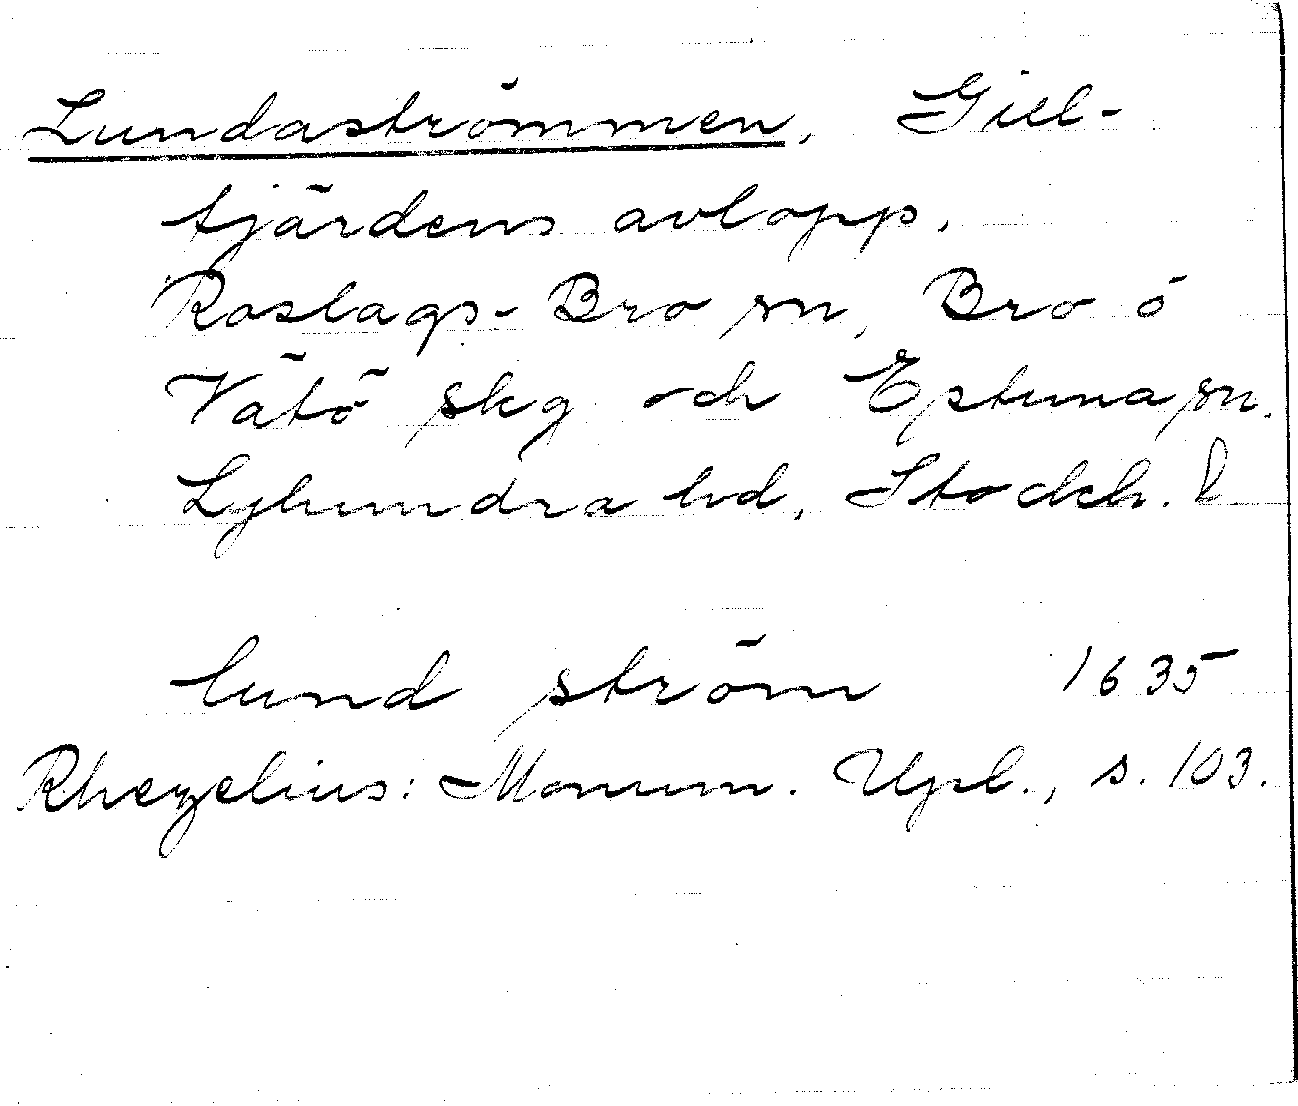 Lundaströmmen, Giel-
fjärdens avlopp.
Roslags-Bro sn, Bro o
Vätö skg och Estuna sn.
Lyhundra hd, Stockh. l
lund ström 1635
Rhezelius: Monum. Upl., s. 103.